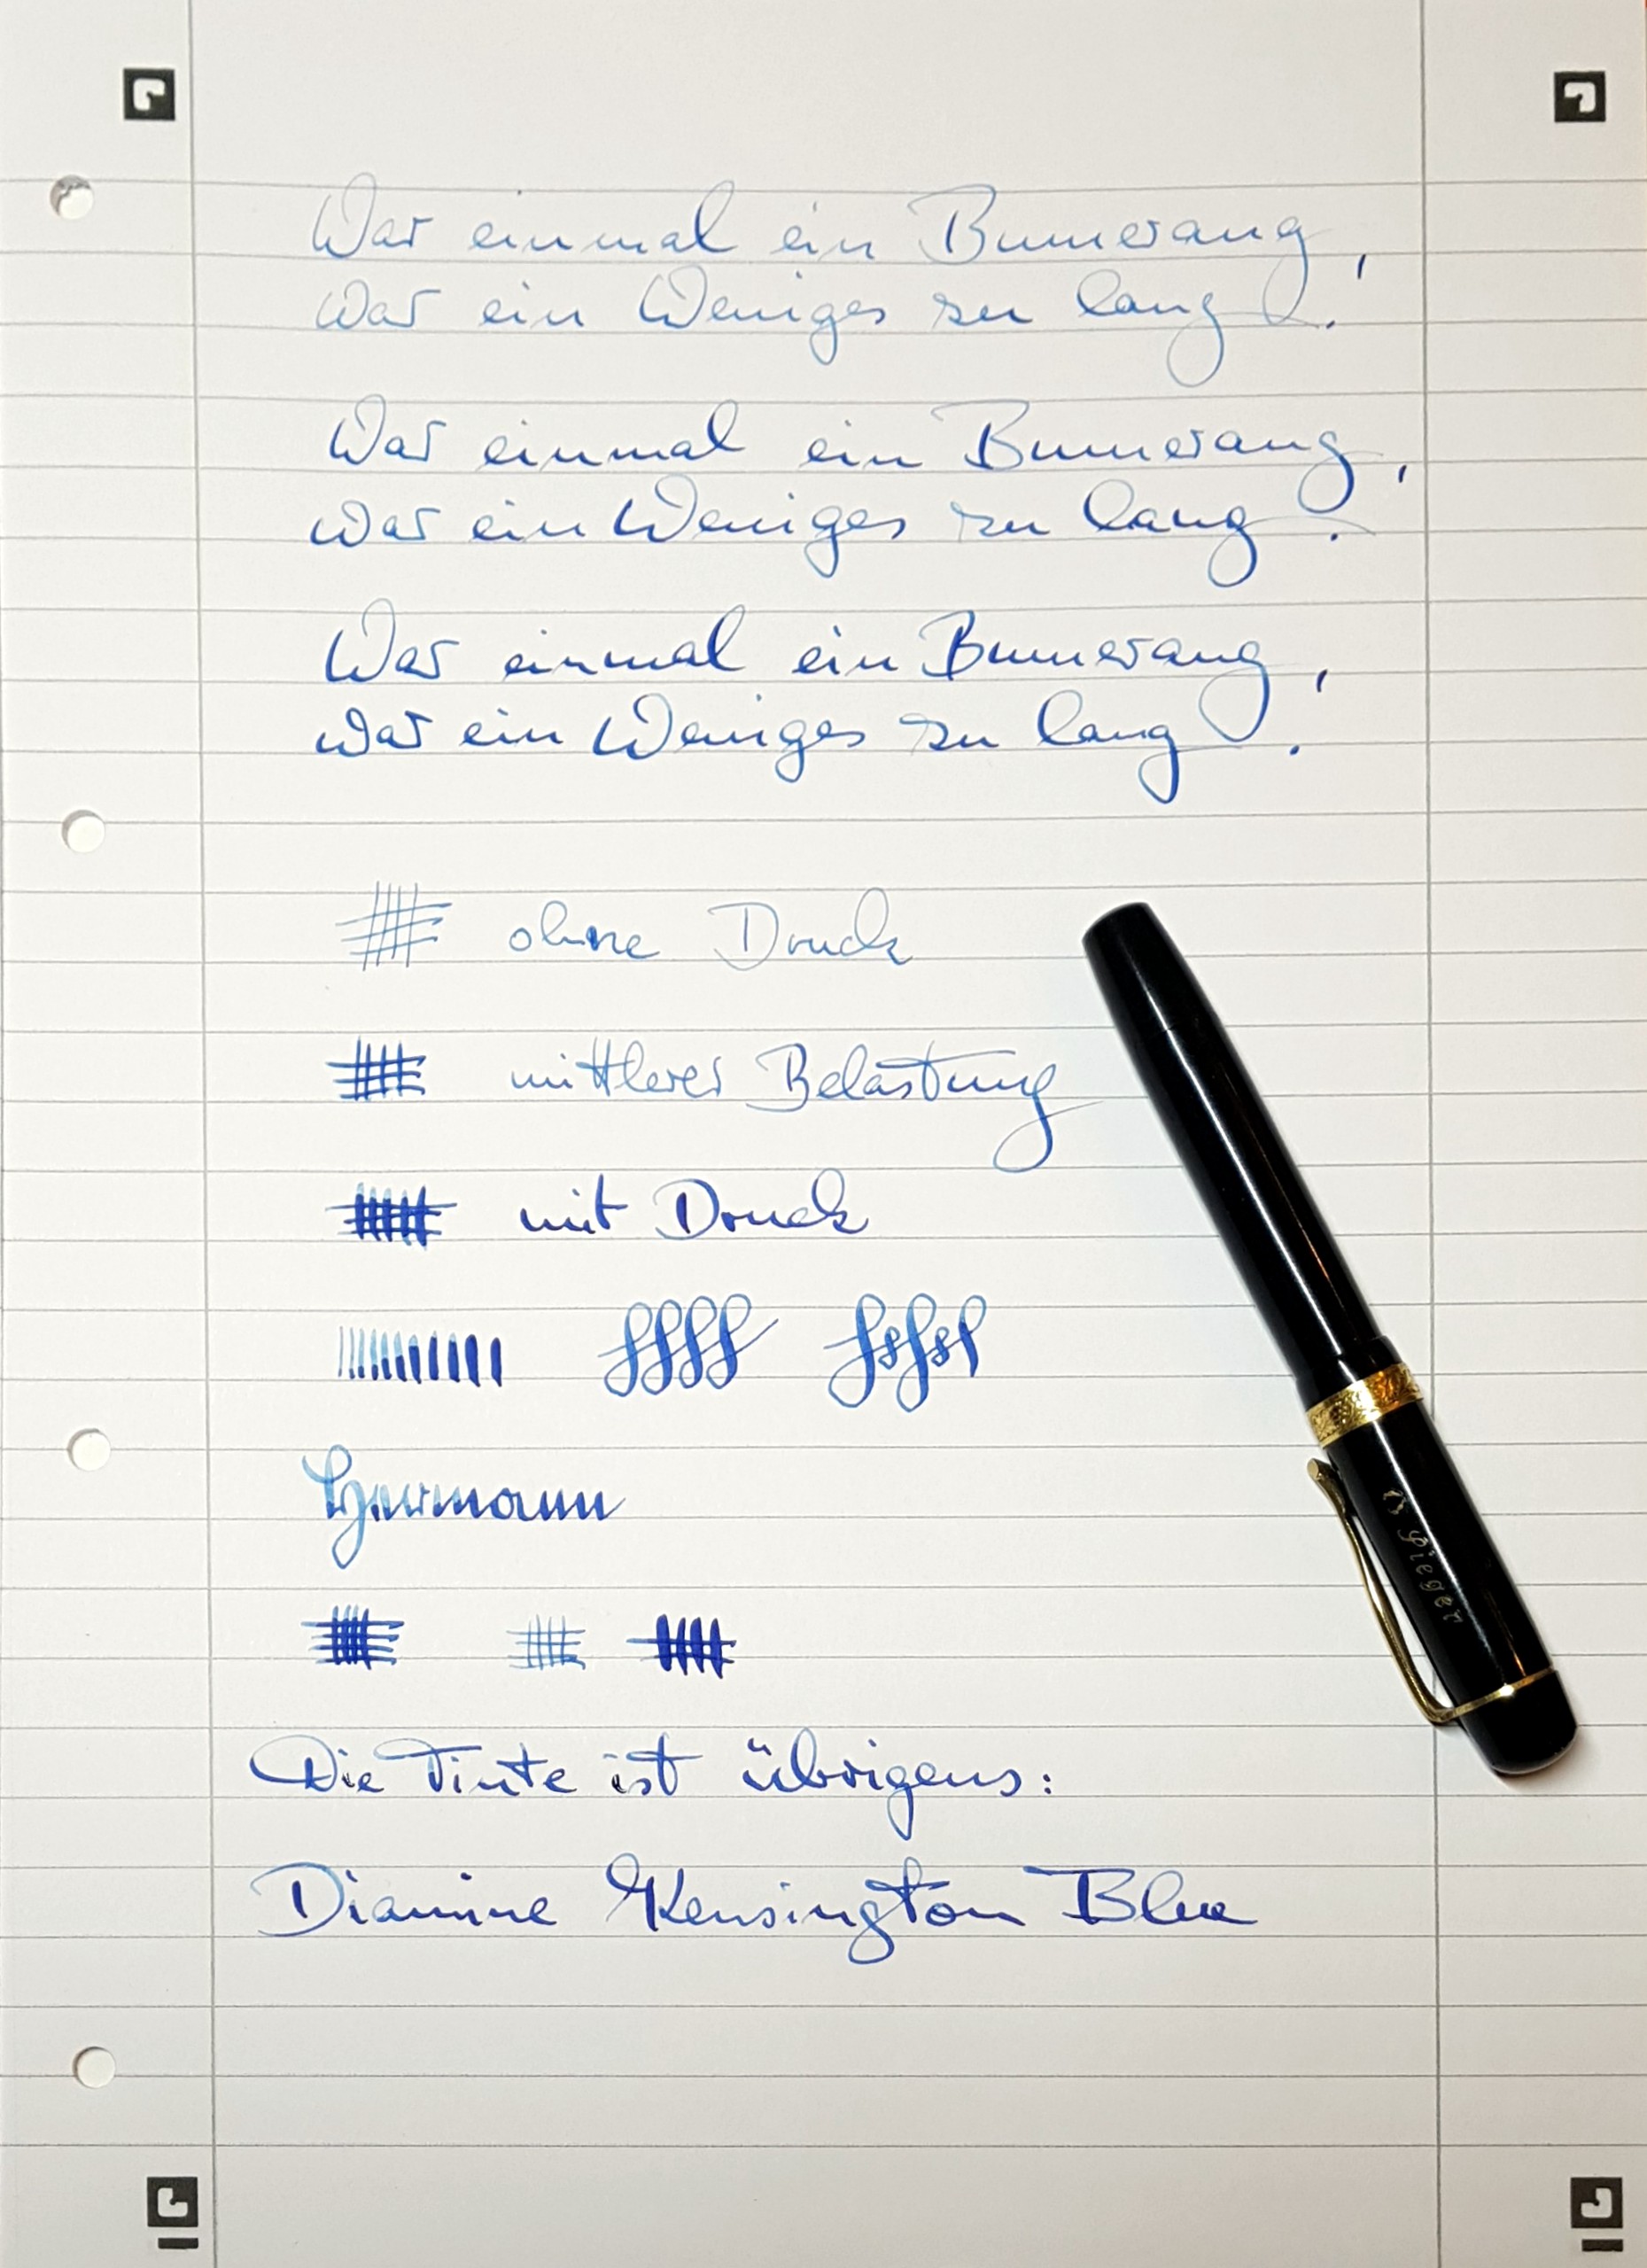 War einmal ein Bumerang,
war ein Weniges zu lang.
War einmal ein Bumerang,
war ein Weniges zu lang.
War einmal ein Bumerang,
war ein Weniges zu lang.
ohne Druck
mittlerer Belastung
mit Druck
Die Tinte ist übrigens:
Diamine Kensington Blue